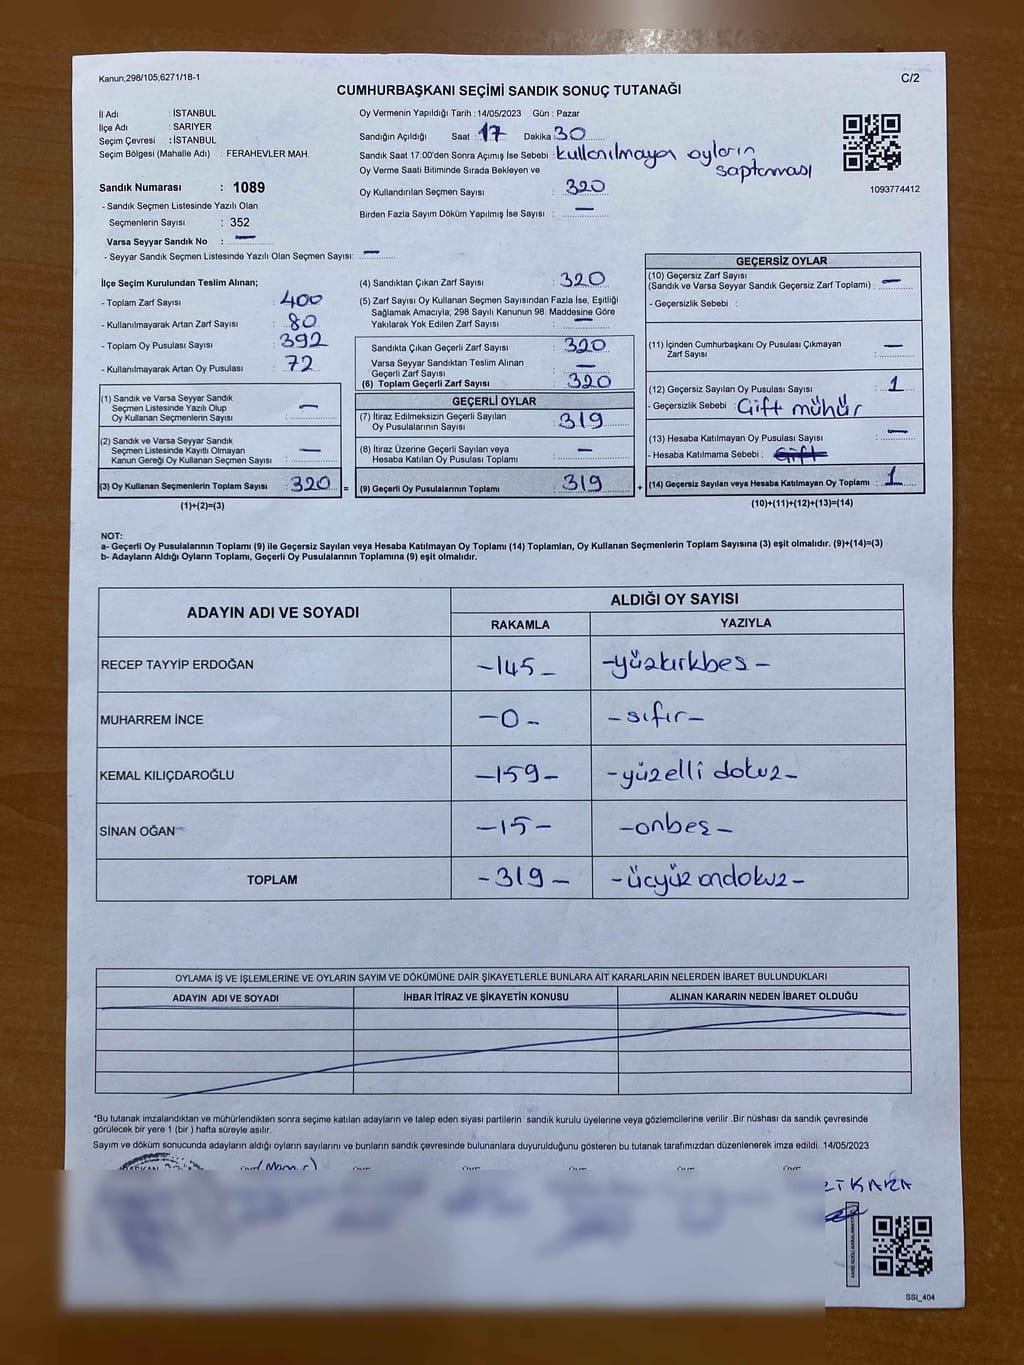 Kanun,298/105,6271/18-1
C/2
CUMHURBAŞKANI SEÇİMİ SANDIK SONUÇ TUTANAĞI
İl Adı : İSTANBUL
İlçe Adı : SARIYER
Seçim Çevresi : İSTANBUL
Seçim Bölgesi (Mahalle Adı) : FERAHEVLER MAH.
Sandık Numarası : 1089
- Sandık Seçmen Listesinde Yazılı Olan
Seçmenlerin Sayısı : 352
Varsa Seyyar Sandık No : —
- Seyyar Sandık Seçmen Listesinde Yazılı Olan Seçmen Sayısı: —
Oy Vermenin Yapıldığı Tarih : 14/05/2023 Gün : Pazar
Sandığın Açıldığı Saat : 17 Dakika : 30
Sandık Saat 17:00'den Sonra Açımış İse Sebebi : kullanılmayan oyların
saptanması
Oy Verme Saati Bitiminde Sırada Bekleyen ve
Oy Kullandırılan Seçmen Sayısı : 320
Birden Fazla Sayım Döküm Yapılmış İse Sayısı : —
1093774412
İlçe Seçim Kurulundan Teslim Alınan;
- Toplam Zarf Sayısı : 400
- Kullanılmayarak Artan Zarf Sayısı : 80
- Toplam Oy Pusulası Sayısı : 392
- Kullanılmayarak Artan Oy Pusulası : 72
(1) Sandık ve Varsa Seyyar Sandık
Seçmen Listesinde Yazılı Olup
Oy Kullanan Seçmenlerin Sayısı : —
(2) Sandık ve Varsa Seyyar Sandık
Seçmen Listesinde Kayıtlı Olmayan
Kanun Gereği Oy Kullanan Seçmen Sayısı : —
(3) Oy Kullanan Seçmenlerin Toplam Sayısı : 320 =
(1)+(2)=(3)
(4) Sandıktan Çıkan Zarf Sayısı : 320
(5) Zarf Sayısı Oy Kullanan Seçmen Sayısından Fazla İse, Eşitliği
Sağlamak Amacıyla; 298 Sayılı Kanunun 98. Maddesine Göre
Yakılarak Yok Edilen Zarf Sayısı : —
Sandıkta Çıkan Geçerli Zarf Sayısı : 320
Varsa Seyyar Sandıktan Teslim Alınan
Geçerli Zarf Sayısı : —
(6) Toplam Geçerli Zarf Sayısı : 320
GEÇERLİ OYLAR
(7) İtiraz Edilmeksizin Geçerli Sayılan
Oy Pusulalarının Sayısı : 319
(8) İtiraz Üzerine Geçerli Sayılan veya
Hesaba Katılan Oy Pusulası Toplamı : —
(9) Geçerli Oy Pusulalarının Toplamı : 319 +
GEÇERSİZ OYLAR
(10) Geçersiz Zarf Sayısı
(Sandık ve Varsa Seyyar Sandık Geçersiz Zarf Toplamı) : —
- Geçersizlik Sebebi :
(11) İçinden Cumhurbaşkanı Oy Pusulası Çıkmayan
Zarf Sayısı : —
(12) Geçersiz Sayılan Oy Pusulası Sayısı : 1
- Geçersizlik Sebebi : Çift mühür
(13) Hesaba Katılmayan Oy Pusulası Sayısı : —
- Hesaba Katılmama Sebebi : Çift
(14) Geçersiz Sayılan veya Hesaba Katılmayan Oy Toplamı : 1
(10)+(11)+(12)+(13)=(14)
NOT:
a- Geçerli Oy Pusulalarının Toplamı (9) ile Geçersiz Sayılan veya Hesaba Katılmayan Oy Toplamı (14) Toplamları, Oy Kullanan Seçmenlerin Toplam Sayısına (3) eşit olmalıdır. (9)+(14)=(3)
b- Adayların Aldığı Oyların Toplamı, Geçerli Oy Pusulalarının Toplamına (9) eşit olmalıdır.
ADAYIN ADI VE SOYADI
ALDIĞI OY SAYISI
RAKAMLA YAZIYLA
RECEP TAYYİP ERDOĞAN –145– –yüzkırkbeş–
MUHARREM İNCE –0– –sıfır–
KEMAL KILIÇDAROĞLU –159– –yüzelli dokuz–
SİNAN OĞAN –15– –onbeş–
TOPLAM –319– –üçyüz ondokuz–
OYLAMA İŞ VE İŞLEMLERİNE VE OYLARIN SAYIM VE DÖKÜMÜNE DAİR ŞİKAYETLERLE BUNLARA AİT KARARLARIN NELERDEN İBARET BULUNDUKLARI
ADAYIN ADI VE SOYADI İHBAR İTİRAZ VE ŞİKAYETİN KONUSU ALINAN KARARIN NEDEN İBARET OLDUĞU
*Bu tutanak imzalandıktan ve mühürlendikten sonra seçime katılan adayların ve talep eden siyasi partilerin sandık kurulu üyelerine veya gözlemcilerine verilir .Bir nüshası da sandık çevresinde
görülecek bir yere 1 (bir ) hafta süreyle asılır.
Sayım ve döküm sonucunda adayların aldığı oyların sayılarını ve bunların sandık çevresinde bulunanlara duyurulduğunu gösteren bu tutanak tarafımızdan düzenlenerek imza edildi. 14/05/2023
SSI_404